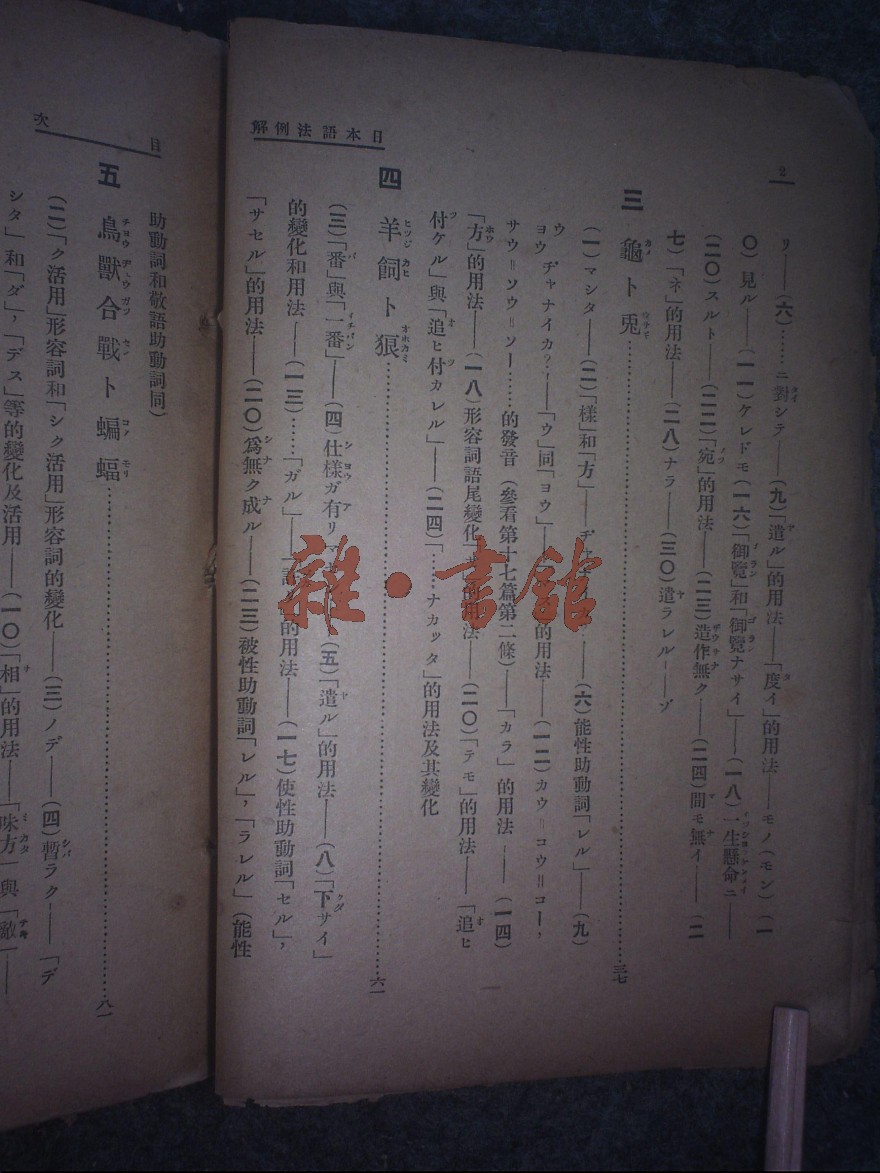 日本語法例解
2
リ——(六)……ニ對シラ——(九)「遣ル」的用法——「度イ」的用法——モノ(モン)(一
〇)見ル——(一一)ケレドモ(一六)「御覽」和「御覽ナサイ」——(一八)一生懸命ニ——
(二〇)スルト——(二二)「宛」的用法——(二三)造作無ク——(二四)間モ無イ——(二
七)「ネ」的用法——(二八)ナラ——(三〇)遣ラレル——ゾ
三 龜ト兎 三七
(一)マシタ——(二)「樣」和「方」————(六)能性助動詞「レル」——(九)
ウ
ヨウ ヂャナイカ?——「ウ」同「ヨウ」——的用法——(一二)カウ=コウ=コー,
サウ=ソウ=ソー……的發音(參看第十七篇第二條)——「カラ」的用法——(一四)
「方」的用法——(一八)形容詞語尾變化——(二〇)「テモ」的用法——「追ヒ
付ケル」與「追ヒ付カレル」——(二四)「……ナカッタ」的用法及其變化
四 羊飼ト狼 六一
(三)「番」與「一番」——(四)仕樣ガ有リマ(五)「遣ル」的用法——(八)「下サイ」
的變化和用法——(一三)……「ガル」——的用法——(一七)使性助動詞「セル」,
「サセル」的用法——(二〇)爲無ク成ル——(二三)被性助動詞「レル」,「ラレル」(能性
目次
助動詞和敬語助動詞同)
五 鳥獸合戰ト蝙蝠 八一
(二)「ク活用」形容詞和「シク活用」形容詞的變化——(三)ノデ——(四)暫ラク——「デ
シタ」和「ダ」,「デス」等的變化及活用——(一〇)「相」的用法——「味方」與「敵」——
雜·書館